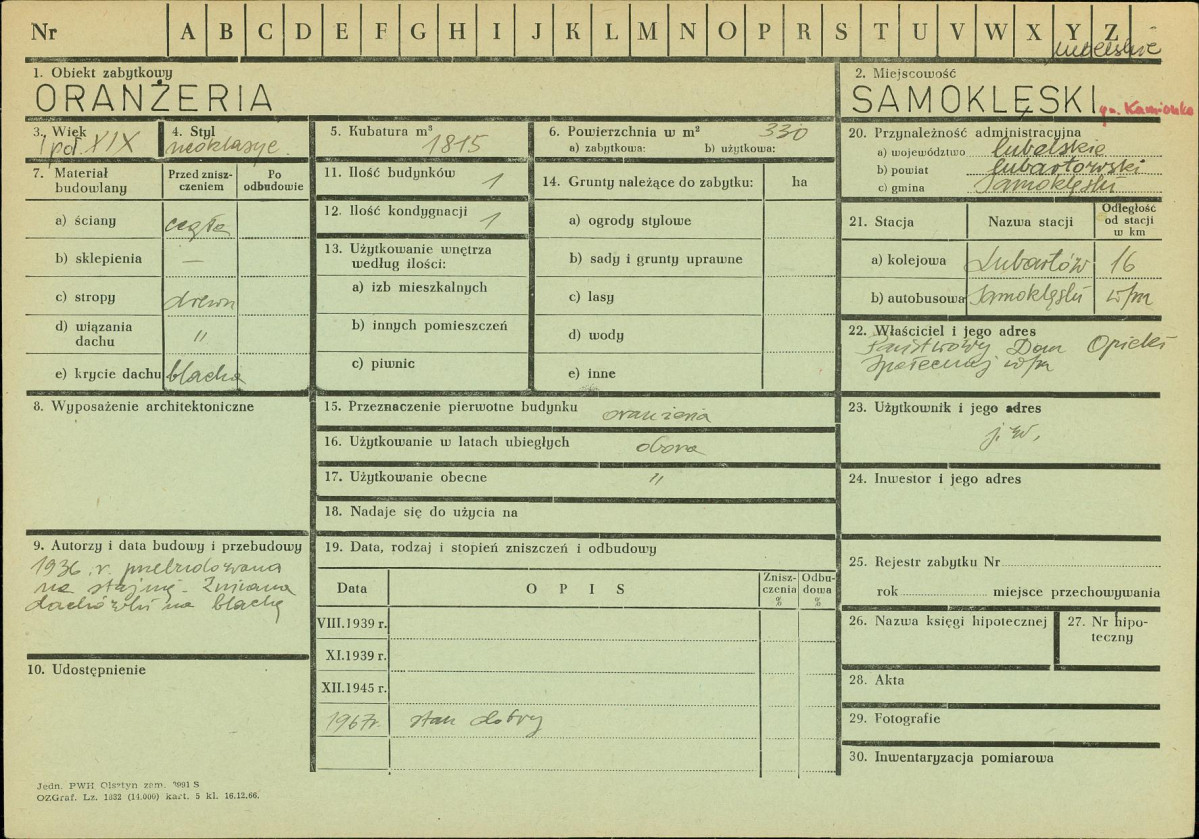 Nr A B C D E F G H I J K L M N O P R S T U V W X Y Z
lubelskie
1. Obiekt zabytkowy
ORANŻERIA
2. Miejscowość
SAMOKLĘSKI gn. Kamionka
3. Wiek
1 poł. XIX
4. Styl
neoklasyc.
5. Kubatura m³
1815
6. Powierzchnia w m² 330
a) zabytkowa: b) użytkowa:
7. Materiał budowlany
Przed zniszczeniem
Po odbudowie
a) ściany cegła
b) sklepienia —
c) stropy drewn
d) wiązania dachu "
e) krycie dachu blacha
8. Wyposażenie architektoniczne
9. Autorzy i data budowy i przebudowy
1936 r. przebudowana
na stajnię. Zmiana
dachówki na blachę
10. Udostępnienie
11. Ilość budynków 1
12. Ilość kondygnacji 1
13. Użytkowanie wnętrza
według ilości:
a) izb mieszkalnych
b) innych pomieszczeń
c) piwnic
14. Grunty należące do zabytku: ha
a) ogrody stylowe
b) sady i grunty uprawne
c) lasy
d) wody
e) inne
15. Przeznaczenie pierwotne budynku oranżeria
16. Użytkowanie w latach ubiegłych obora
17. Użytkowanie obecne "
18. Nadaje się do użycia na
19. Data, rodzaj i stopień zniszczeń i odbudowy
Data OPIS Zniszczenia % Odbudowa %
VIII.1939 r.
XI.1939 r.
XII.1945 r.
1967r. stan dobry
20. Przynależność administracyjna
a) województwo lubelskie
b) powiat lubartowski
c) gmina Samoklęski
21. Stacja Nazwa stacji Odległość od stacji w km
a) kolejowa Lubartów 16
b) autobusowa Samoklęski w/m
22. Właściciel i jego adres
Państwowy Dom Opieki
Społecznej w/m
23. Użytkownik i jego adres
j.w.
24. Inwestor i jego adres
25. Rejestr zabytku Nr
rok miejsce przechowywania
26. Nazwa księgi hipotecznej
27. Nr hipoteczny
28. Akta
29. Fotografie
30. Inwentaryzacja pomiarowa
Jedn. PWH Olsztyn zam. 3991 S
OZGraf. Lz. 1832 (14.000) kart. 5 kl. 16.12.66.